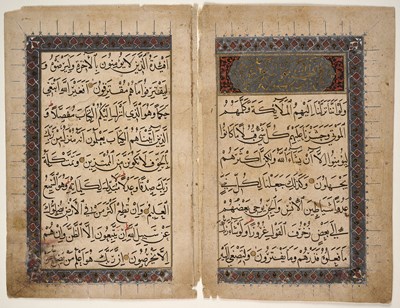 ولو اننا نزلنا اليهم الملئكة وكلمهم
الموتى وحشرنا عليهم كل شئ قبلا ما كانوا
ليؤمنوا الا ان يشاء الله ولكن اكثرهم
يجهلون وكذلك جعلنا لكل نبى
عدوا شياطين الانس والجن يوحى بعضهم
الى بعض زخرف القول غرورا ولو شاء ربك
ما فعلوه فذرهم وما يفترون ولتصغى اليه
افئدة الذين لا يؤمنون بالاخرة وليرضوه و
ليقترفوا ما هم مقترفون افغير الله ابتغى
حكما وهو الذى انزل اليكم الكتاب مفصلا و
الذين اتيناهم الكتاب يعلمون انه منزل من ربك
بالحق فلا تكونن من الممترين وتمت كلمة
ربك صدقا وعدلا لا مبدل لكلماته وهو السميع
العليم وان تطع اكثر من فى الارض يضلوك
عن سبيل الله ان يتبعون الا الظن وان هم
الا يخرصون ان ربك هو اعلم من يضل